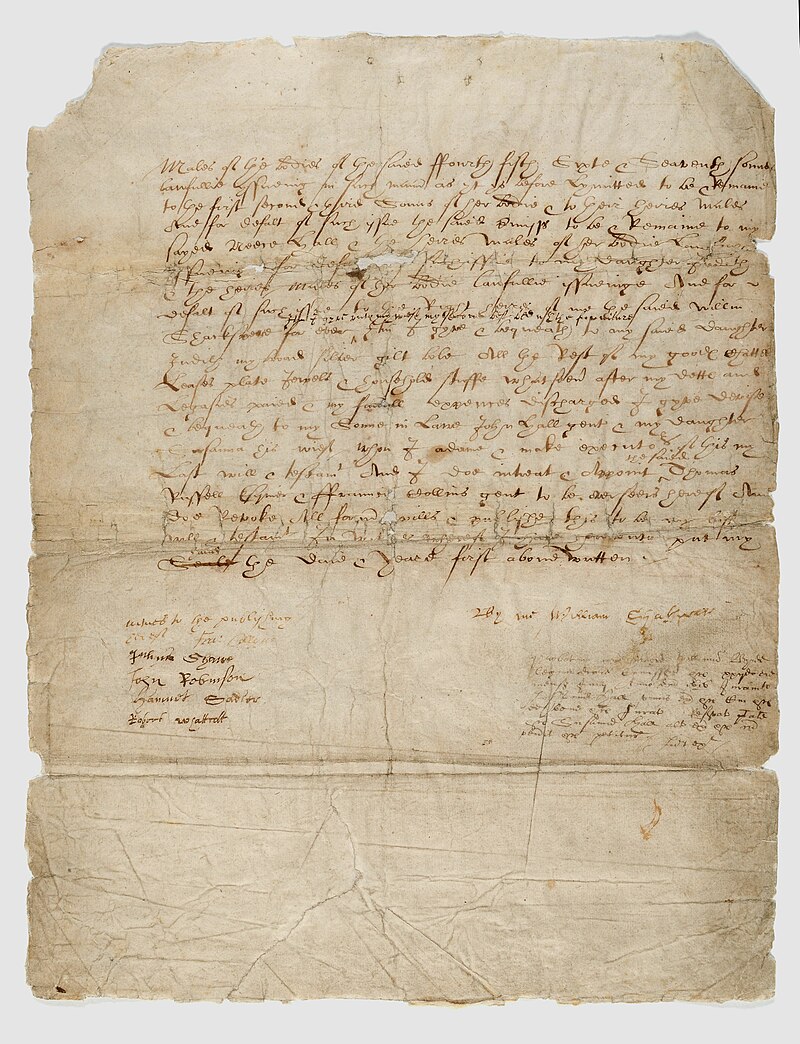 Males of the bodies of the saied ffourth fifth Sixte & Seaventh sonnes
lawfullie issueing in such manner as yt ys before Lymitted to be & Remaine
to the first second & third Sonns of her bodie & to their heires Males
And for defalt of such issue the said premisses to be & Remaine to my
sayed Neece Hall & the heires Males of her bodie Lawfully
issueing for default of such issue to my daughter Judith
& the heires Males of her bodie lawfullie issueinge And for
defalt of such issue to the Right heires of me the saied willm
Shackspere for ever
Itm I gyve unto my wief my second best bed wth the furniture
Itm I gyve & bequeath to my saied daughter
Judith my broad silver gilt bole All the Rest of my goodes Chattels
Leases plate Jewels & household stuffe whatsoever after my dettes and
Legasies paied & my funerall expences discharged I gyve devise
& bequeath to my Sonne in Lawe John Hall gent & my daughter
Susanna his wief whom I ordaine & make executors of this my
Last will & testamt And I doe intreat & Appoint
the saied
Thomas
Russell Esquier & ffrauncis Collins gent to be overseers hereof And
doe Revoke All former wills & publishe this to be my last
will & testamt In witnes whereof I have hereunto put my
hand
Seale the daie & yeare first above written
By me William Shakspeare
witnes to the publishing
hereof
Julius Shawe
John Robinson
Hamnet Sadler
Robert Whattcott